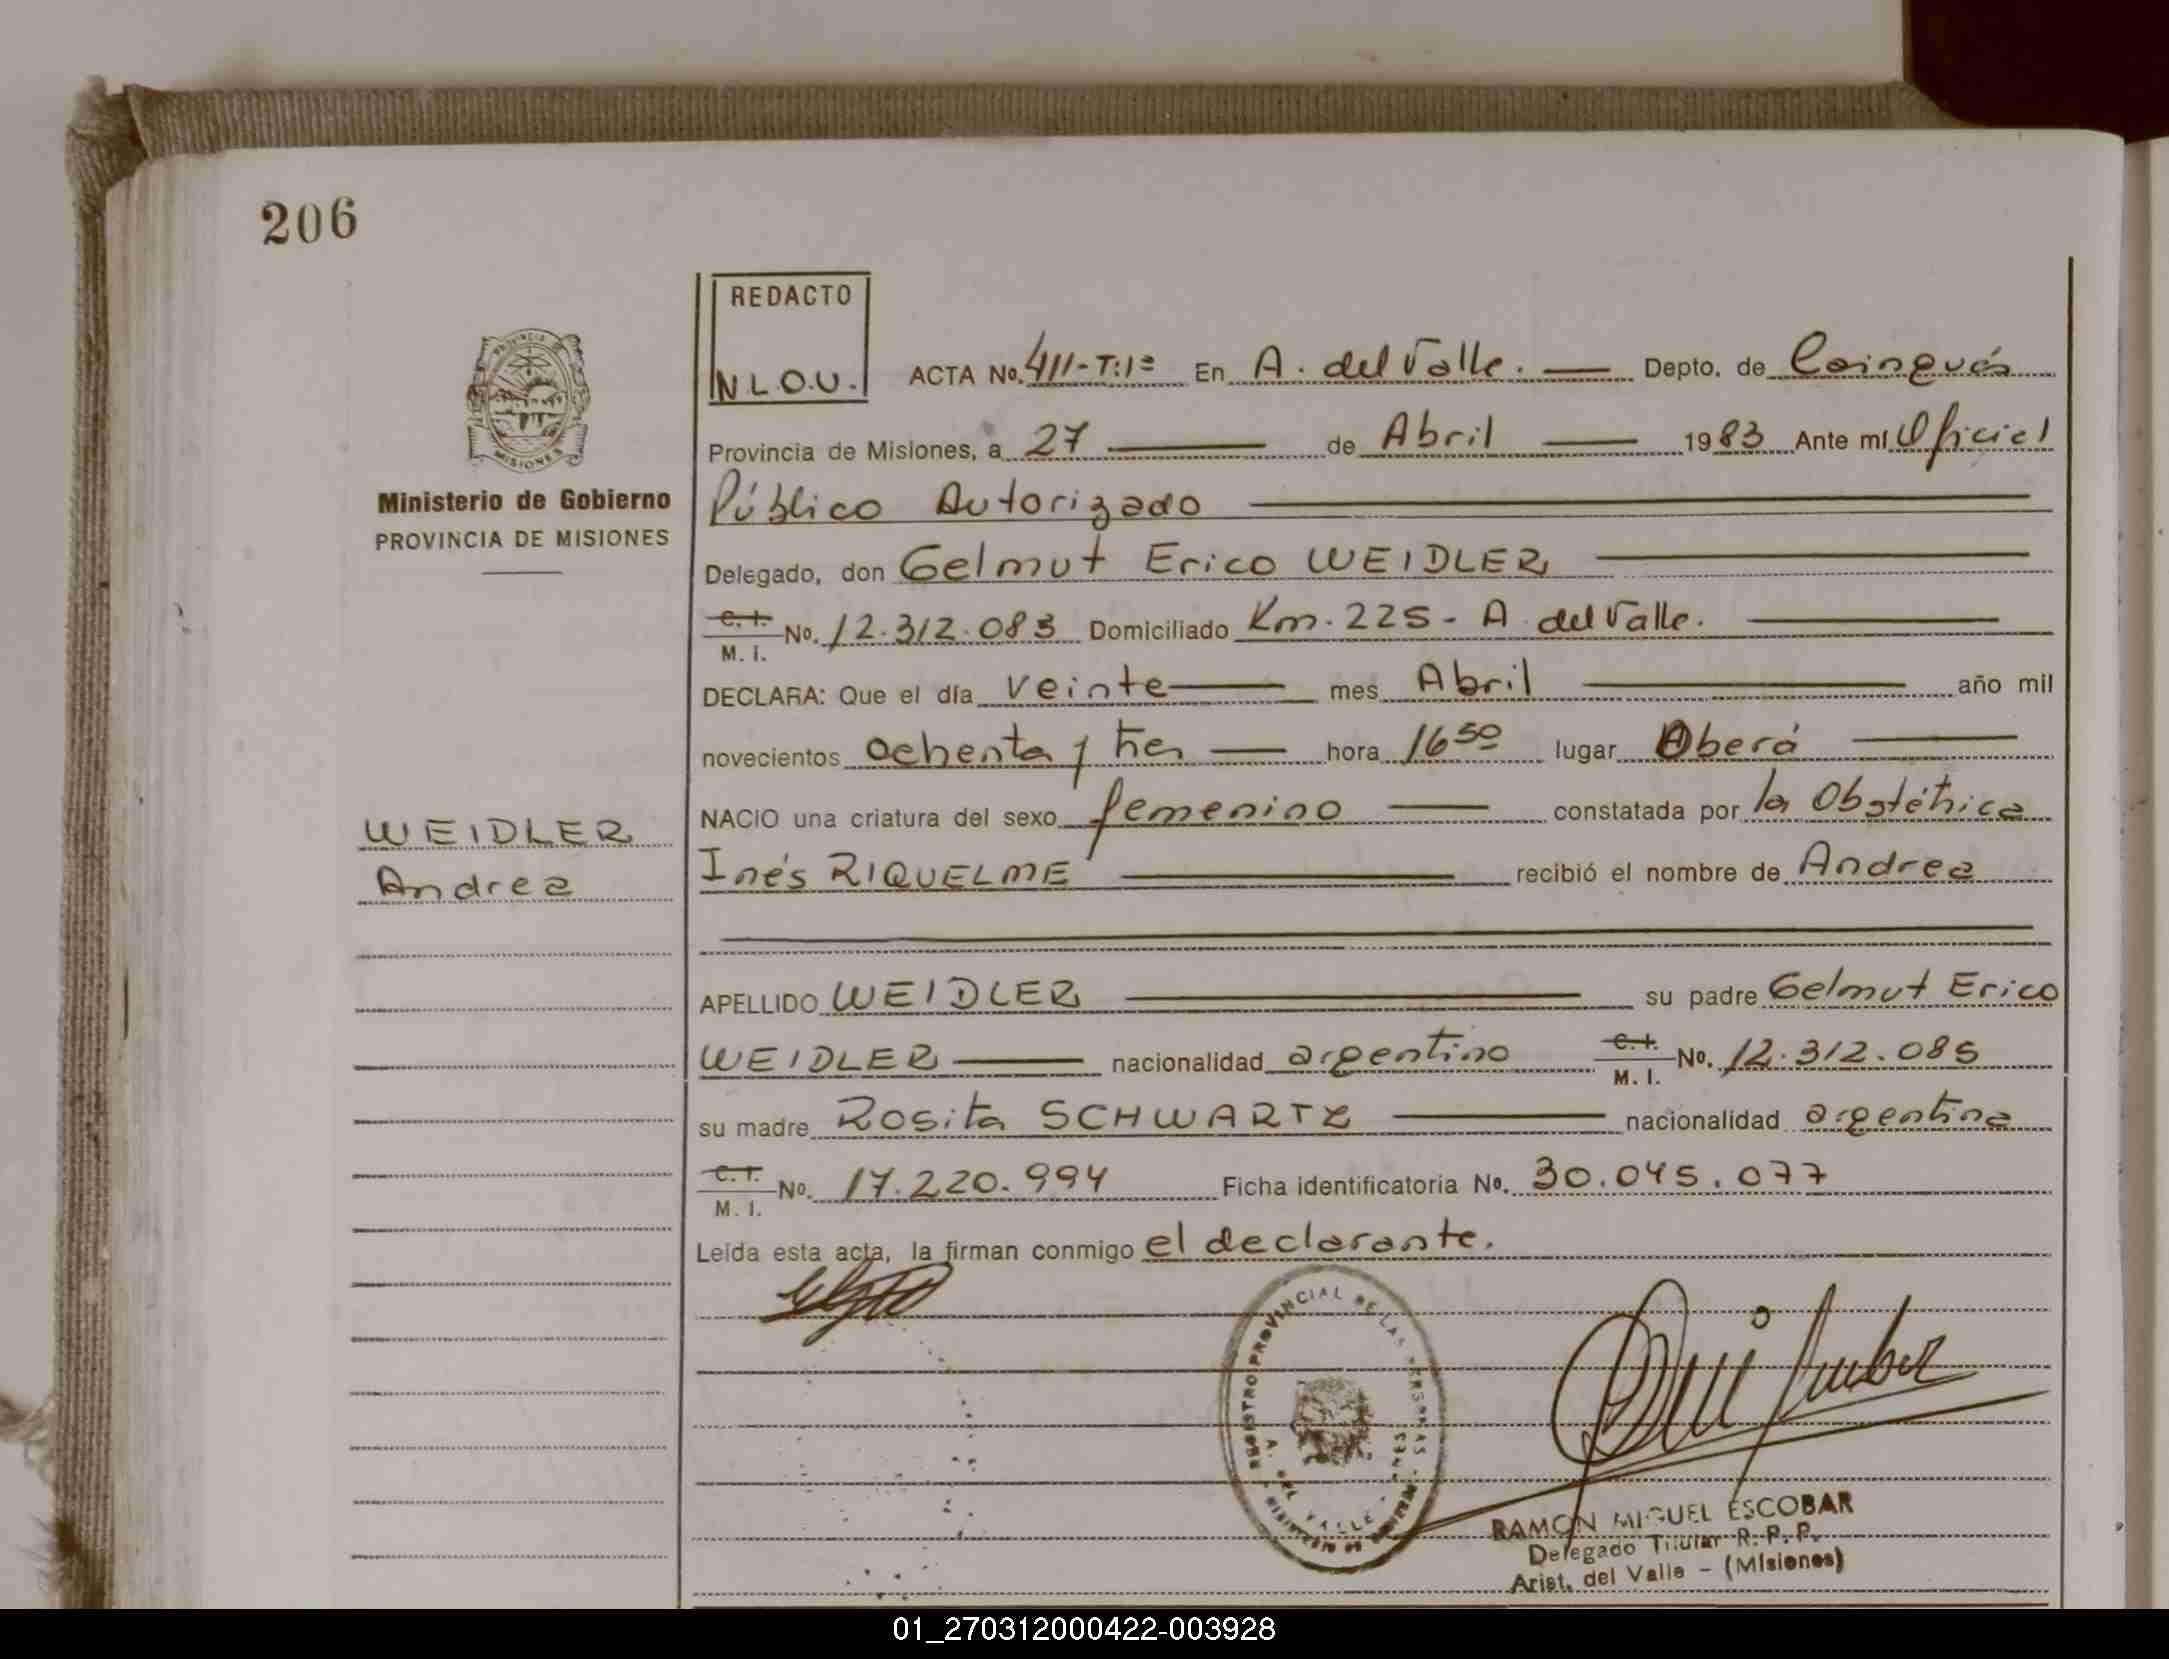 206
REDACTO
N.L.O.U.
ACTA No. 411-T:1º En A. del Valle. Depto. de Cainguás
Provincia de Misiones, a 27 de Abril 1983 Ante mí Oficial
Público Autorizado
Delegado, don Gelmut Erico WEIDLER
C. I. M. I. No. 12.312.083 Domiciliado Km. 225 - A. del Valle.
DECLARA: Que el día veinte mes Abril año mil
novecientos ochenta y tres hora 16 50 lugar Oberá
NACIO una criatura del sexo femenino constatada por la Obstétrica
Inés RIQUELME recibió el nombre de Andrea
APELLIDO WEIDLER su padre Gelmut Erico
WEIDLER nacionalidad argentino C. I. M. I. No. 12.312.085
su madre Rosita SCHWARTZ nacionalidad argentina
C. I. M. I. No. 17.220.994 Ficha identificatoria No. 30.045.077
Leída esta acta, la firman conmigo el declarante.
PROVINCIA DE
MISIONES
Ministerio de Gobierno
PROVINCIA DE MISIONES
WEIDLER
Andrea
REGISTRO PROVINCIAL DE LAS PERSONAS
A. DEL VALLE
RAMON MIGUEL ESCOBAR
Delegado Titular R. P. P.
Arist. del Valle - (Misiones)
01_270312000422-003928